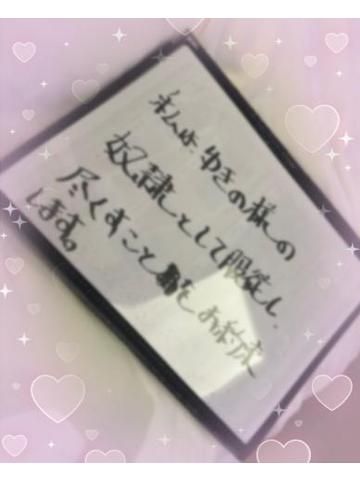 私は、ゆきの様の
奴隷として服従し、
尽くすことを お約束
します。